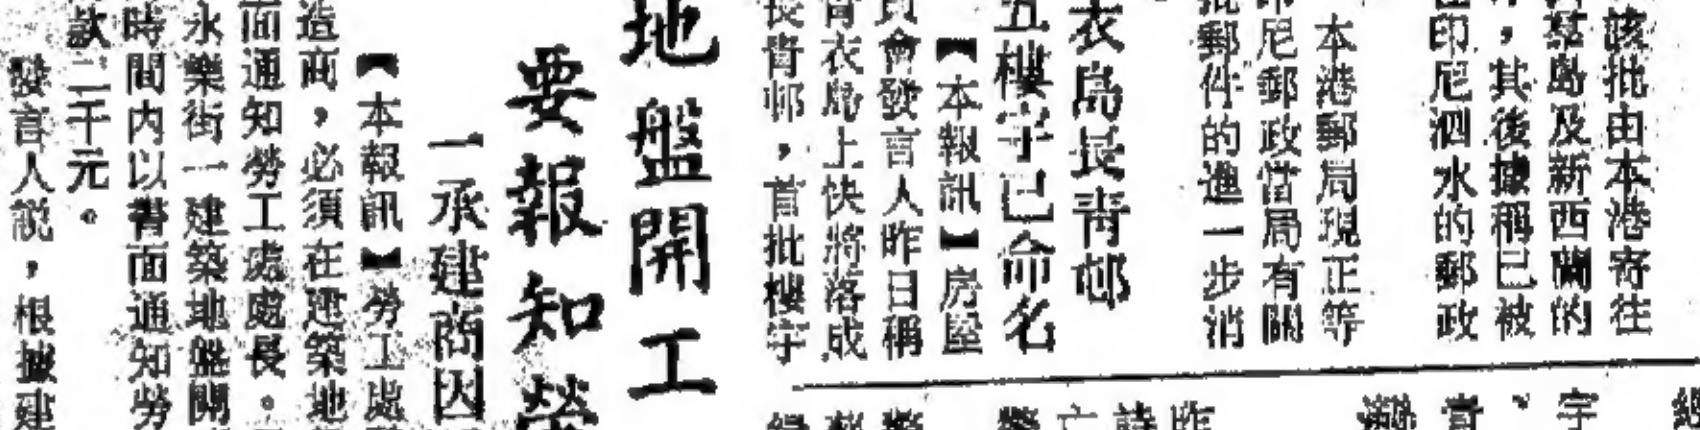 該批由本港寄往
基島及新西蘭的
，其後據稱已被
印尼泗水的郵政
本港郵局現正等
印尼郵政當局有關
批郵件的進一步消
衣島長青邨
五樓宇已命名
【本報訊】房屋
員會發言人昨日稱
青衣島上快將落成
長青邨，首批樓宇
地盤開工
要報知勞
一承建商因
【本報訊】勞工處
造商，必須在建築地
面通知勞工處處長。
永樂街一建築地盤開
時間内以書面通知勞
款二千元。
發言人説，根據建